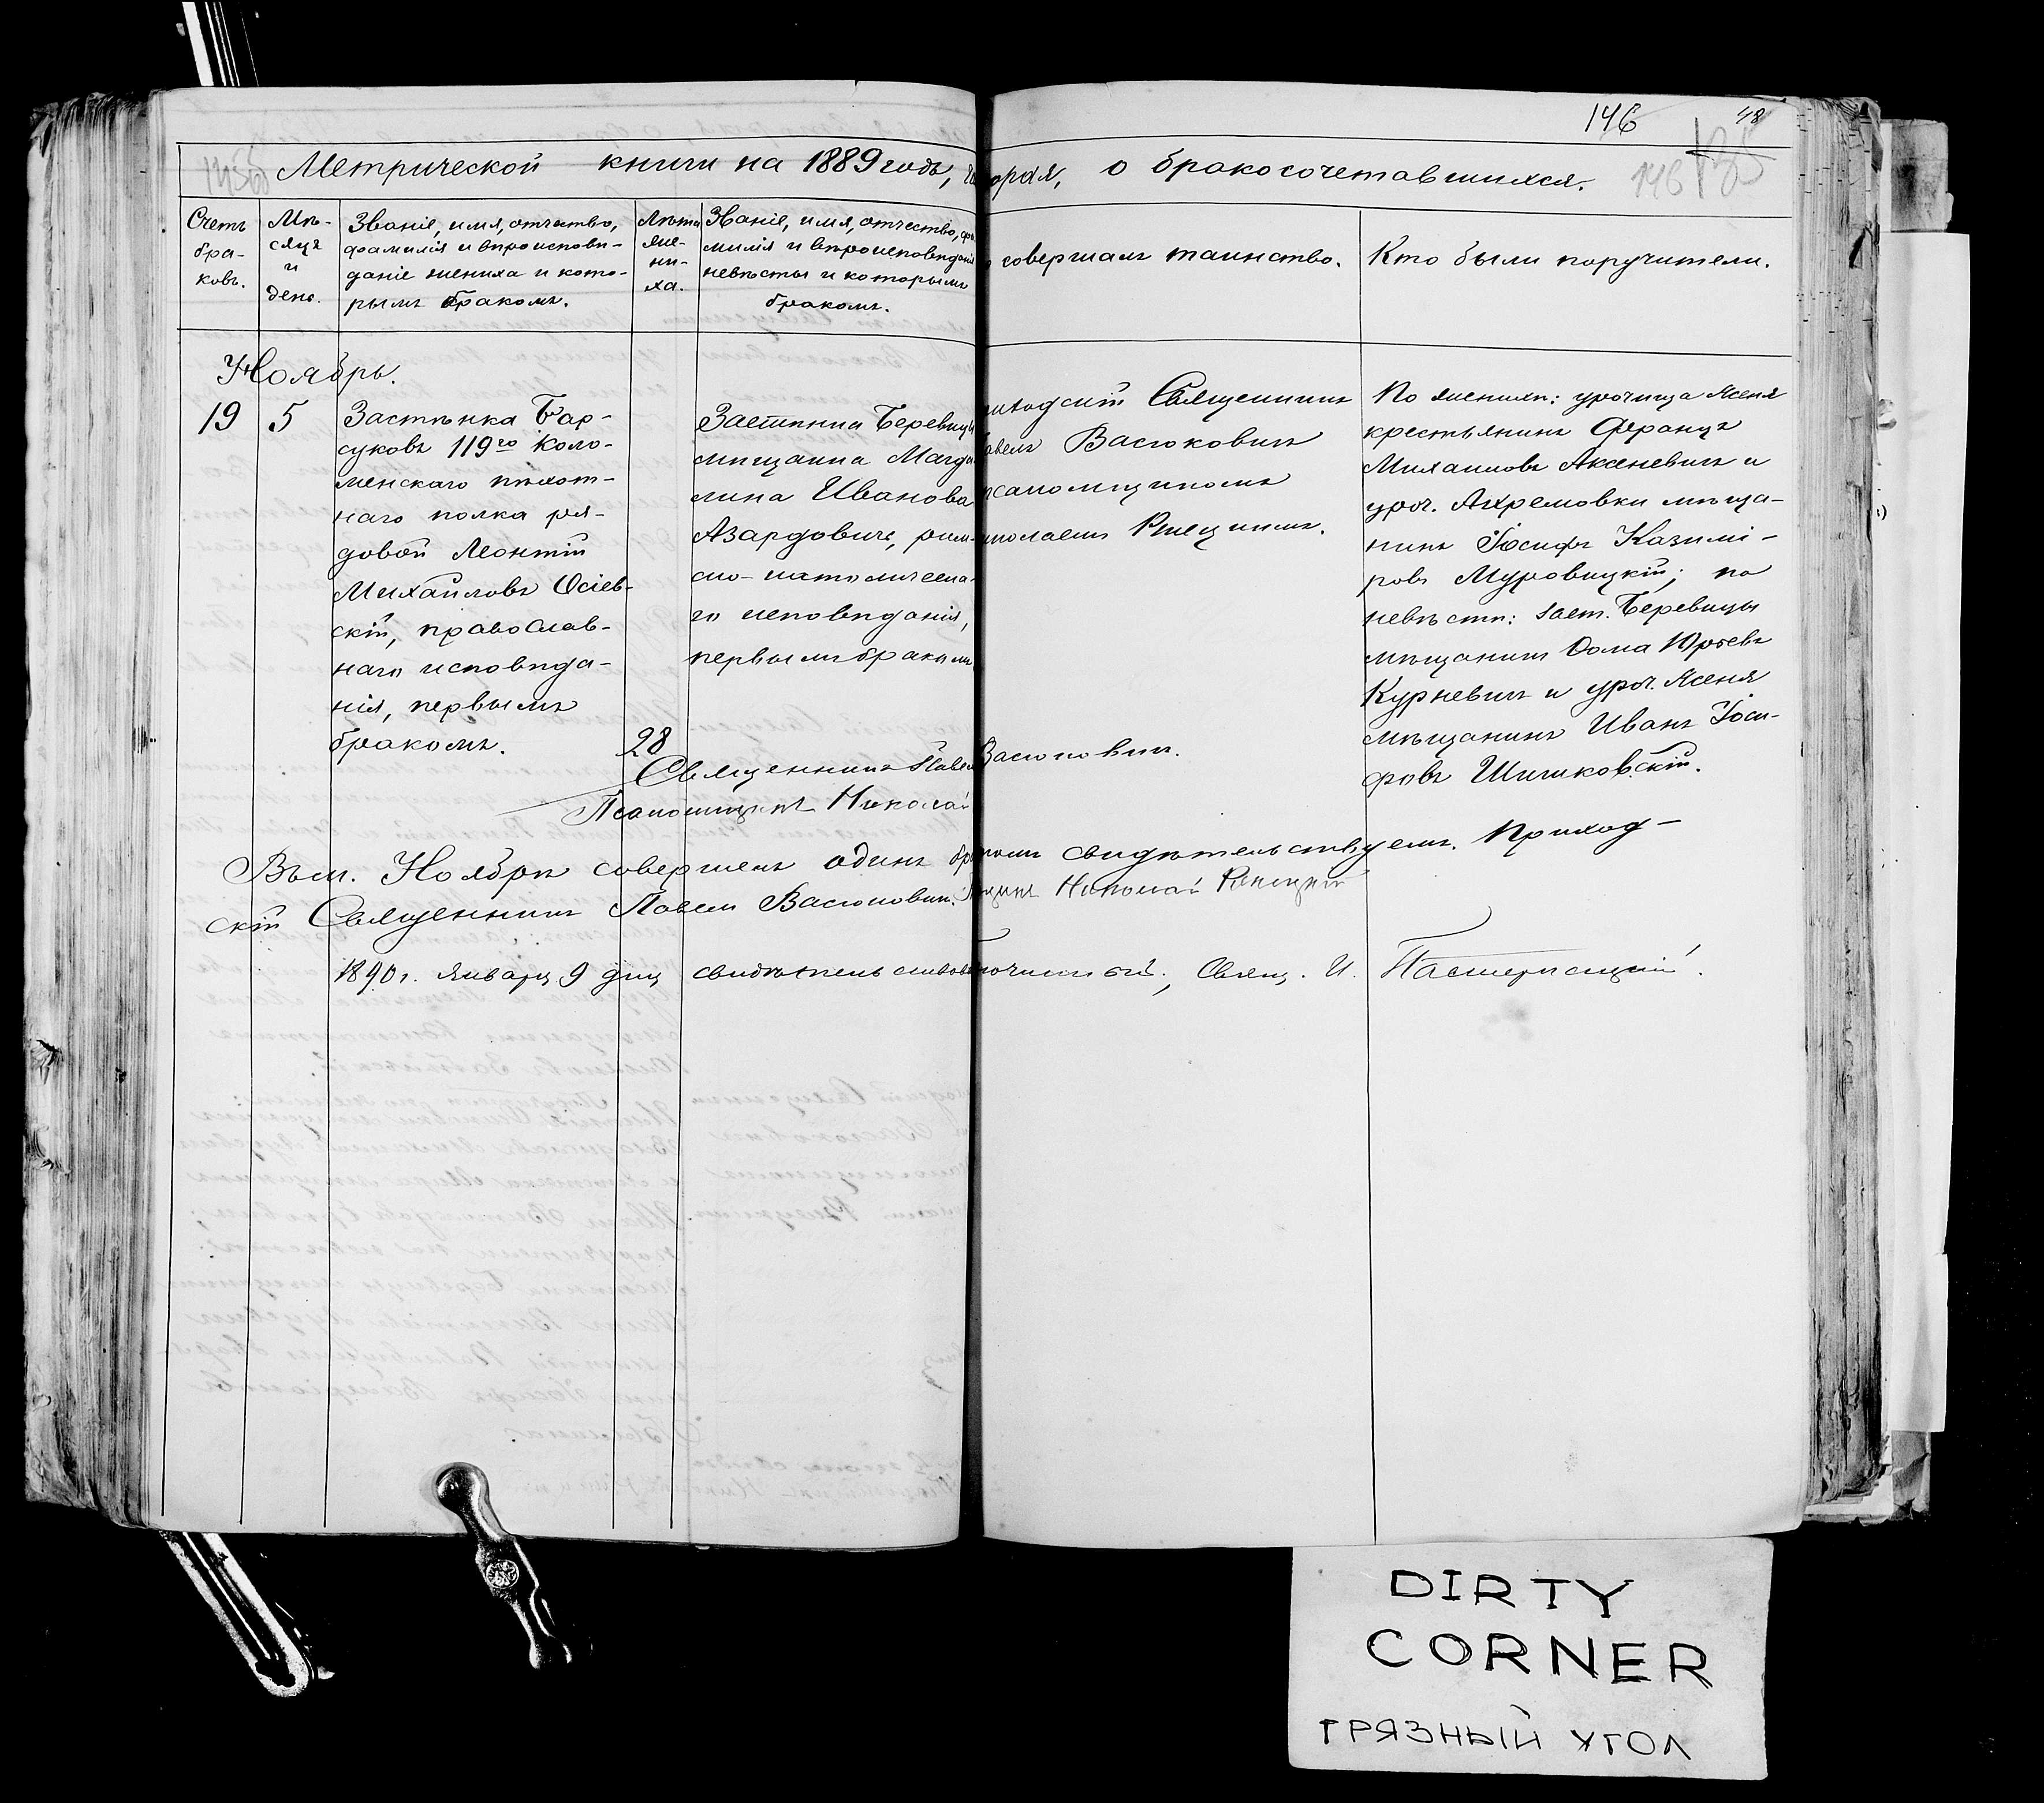 146
48
146
Метрической книги на 1889 годъ, торая, о бракосочетавшихся.
Счетъ браковъ.
Мѣсяцъ и день.
Званіе, имя, отчество,
фамилія и вѣроисповѣ-
даніе жениха и кото-
рымъ бракомъ.
Лѣта
же-
ни-
ха.
Званіе, имя, отчество, фа
милія и вѣроисповѣданіе
невѣсты и которымъ
бракомъ.
совершалъ таинство.
Кто были поручители.
Ноябрь.
19
5
Застѣнка Бар-
суковъ 119го Коло-
менскаго пѣхот-
наго полка ря-
довой Леонтій
Михайловъ Осіев-
скій, православ-
наго исповѣда-
нія, первымъ
бракомъ.
28
Застѣнка Беревицы
мѣщанка Магда
лина Иванова
Азардовичъ, рим-
ско-католическа-
го исповѣданія,
первымъ бракомъ
иходскій Священникъ
авелъ Васюковичъ
псаломщикомъ
иколаемъ
По женихѣ: урочища Ясеня
крестьянинъ Францъ
Михаиловъ Аксеневичъ и
уроч. Ахремовки мѣща-
нинъ Іосифъ Казимі-
ровъ Муровицкій; по
невѣстѣ: заст. Беревицы
мѣщанинъ Ѳома Юрьевъ
Курневичъ и уроч. Ясеня
мѣщанинъ Иванъ Іоси-
фовъ Шишковскій.
Священникъ Павелъ Васюковичъ.
Псаломщикъ Николай
Въ м. Ноябрѣ совершенъ одинъ бракомъ свидѣтельствуемъ. Приход-
скій Священникъ Павелъ Васюковичъ. Николай
1890 г. Января 9 дня свидѣтельствовъ Благочинный, Свящ. И.
DIRTY
CORNER
ГРЯЗНЫЙ УГОЛ